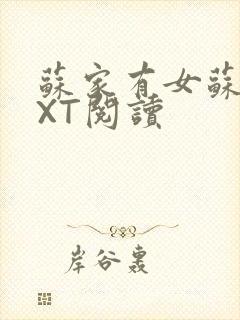 蘇家有女蘇
XT閱讀
岸谷轟